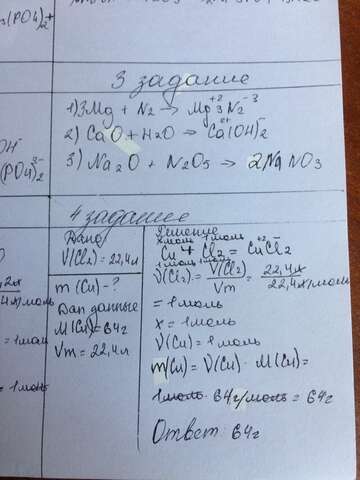 3(PO4)2+
3 задание
1)3Mg + N2 → Mg+23N2-3
2) CaO + H2O → Ca2+(OH)-2
OH-
(PO4)3-2
3) Na2O + N2O5 → 2NaNO3
4 задание
Дано
V(Cl2)= 22,4л
m (Cu) - ?
Доп данные
M(Cu)= 64г
Vm = 22,4л
Решение
xмоль 1моль
Cu + Cl2 = Cu+2Cl2-
1моль 1моль
ν(Cl2) = V(Cl2)/Vm = 22,4л/22,4л/моль
= 1моль
x = 1моль
ν(Cu) = 1моль
m(Cu) = ν(Cu) · M(Cu)=
1моль · 64г/моль = 64г
Ответ 64г
= 1моль